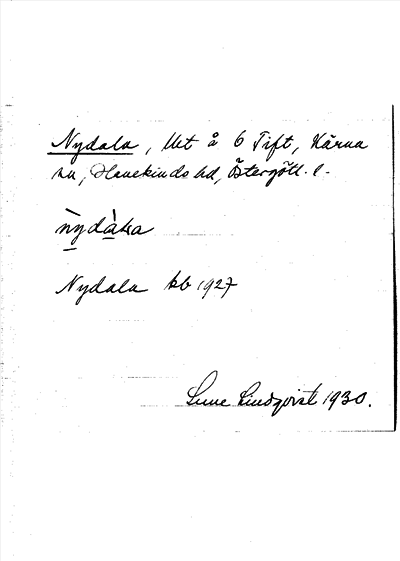 Nydala, lht å 6 Tift, Kärna
sn, Hanekinds hd, Östergötl. l.
nydàla
Nydala kb 1927
Sune Lindqvist 1930.